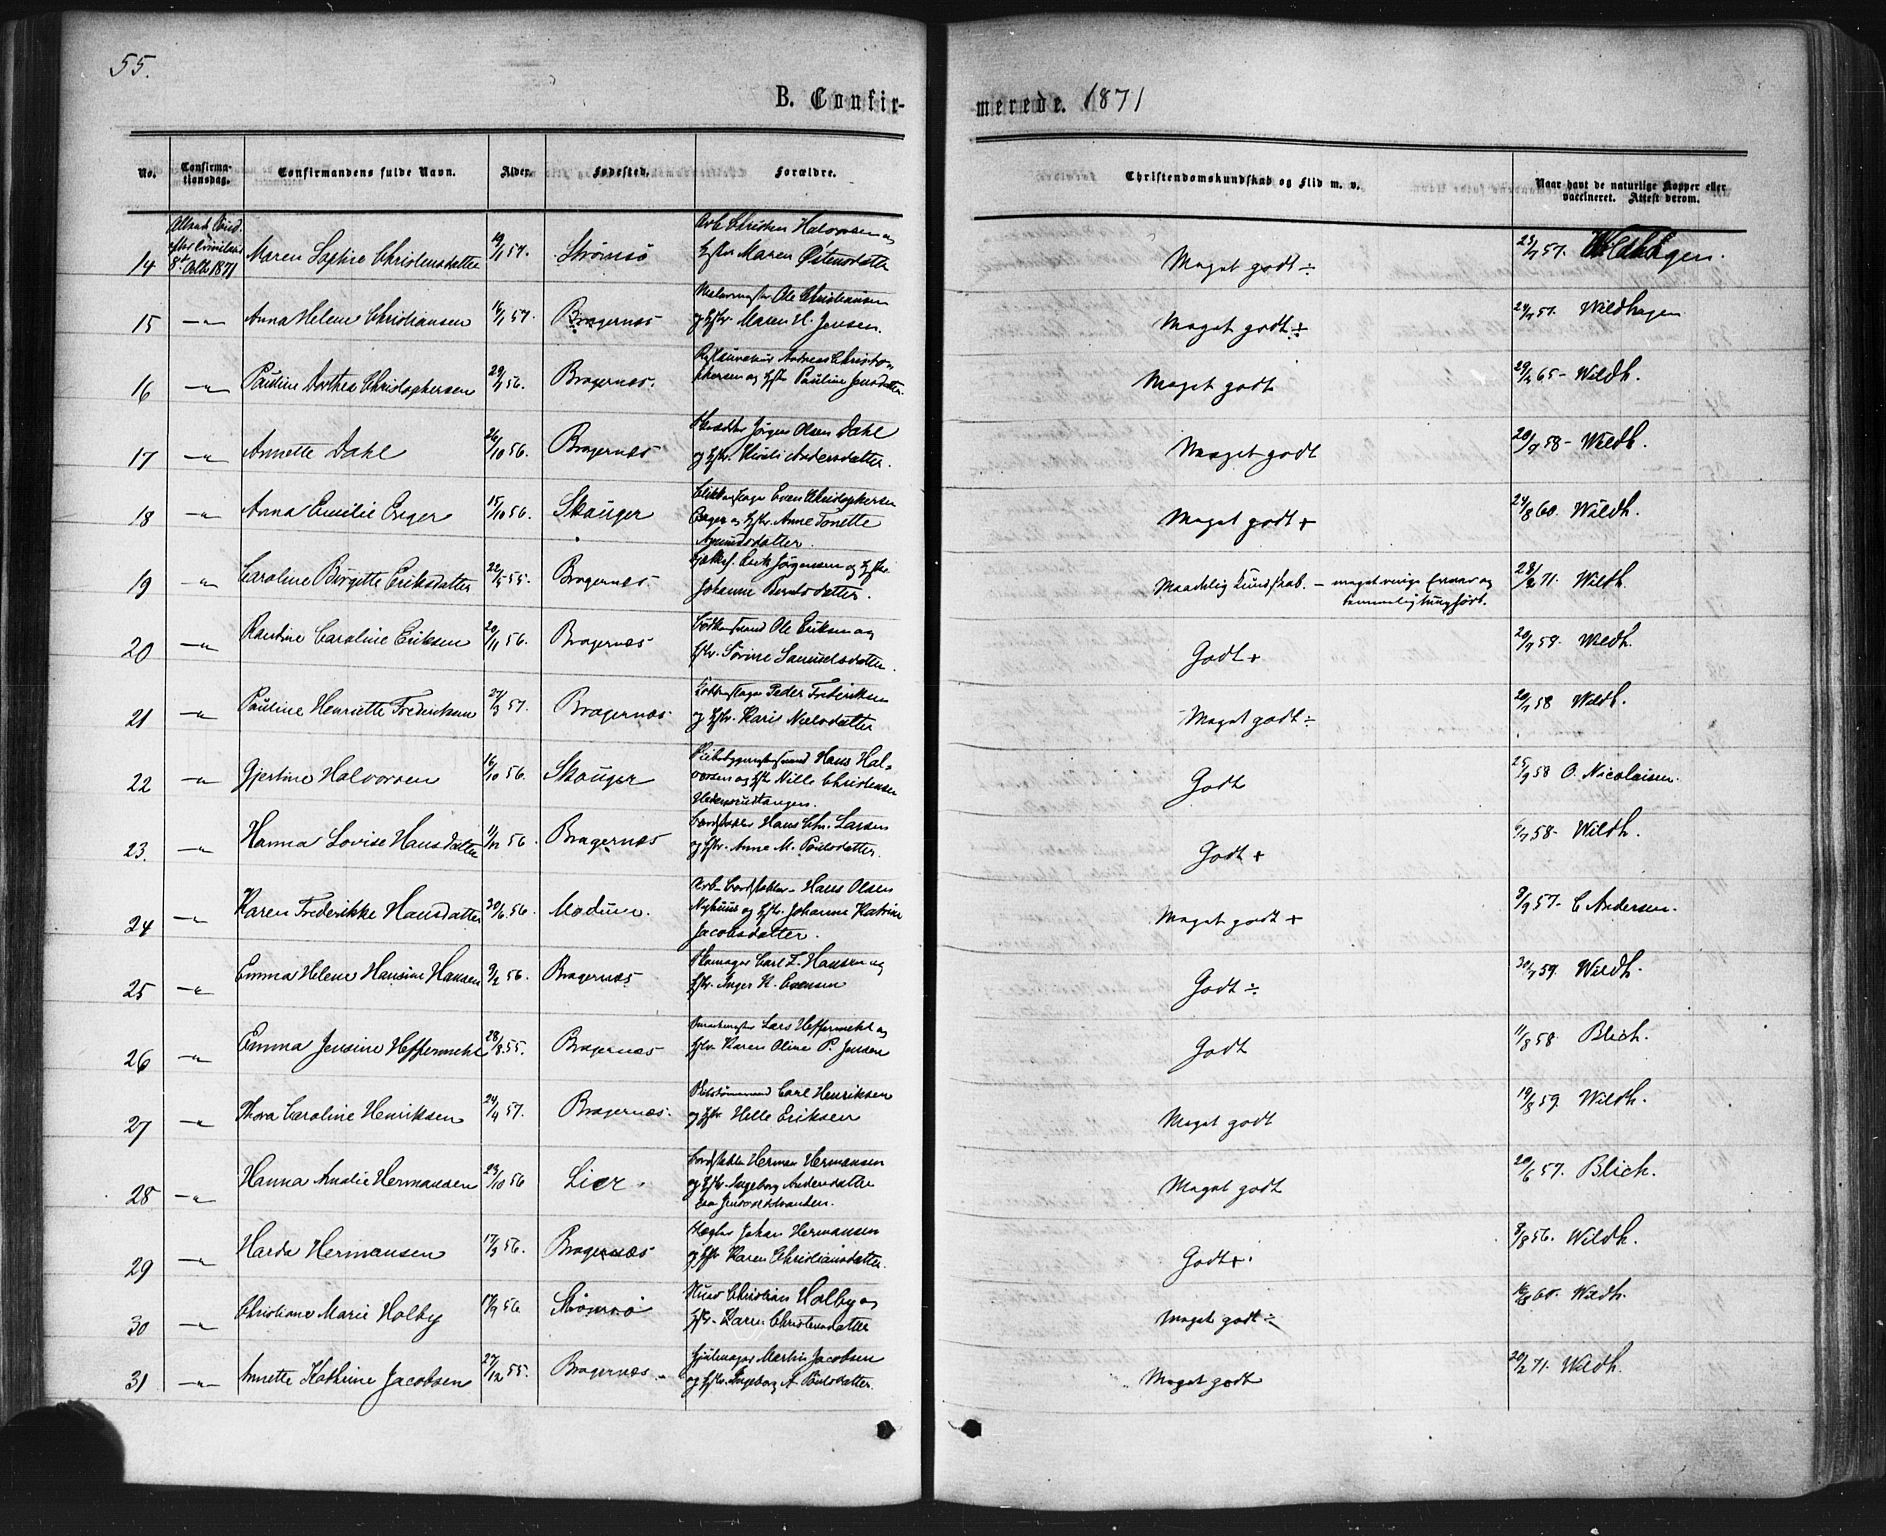 55.
B. Confir-
merede. 1871
No.
Confirma-
tionsdag.
Confirmandens fulde Navn.
Alder.
Fødested.
Forældre.
Christendomskundskab og Flid m. v.
Naar havt de naturlige Kopper eller
vaccineret. Attest derom.
8de Octb 1871
14 Maren Sophie Christensdatter 57. Strømsø Arb. Christen Halvorsen og
Hustr. Maren Østensdatter Meget godt ÷ 57. Wildhagen.
15 —"— Anna Helene Christiansen 57. Bragernæs Ole Christiansen
og Hstr. Maren H. Jensen. Meget godt ÷ 57. Wildhagen
16 —"— Pauline Dorthea Christophersen 29/1 56. Bragernæs. Andreas Christo-
phersen og Hstr Pauline Jensdatter. Meget godt 65 - Wildh.
17 —"— Annette Dahl 26/10 56. Bragernæs Skrædder Jørgen Olsen Dahl
og Hstr. Andersdatter. Meget godt 20/7 58 - Wildh.
18 —"— Anna Emilie Enger 15/10 56. Skauger Even Christophersen
Enger og Hstr. Anne Tonette
Amundsdatter. Meget godt + 24/8 60. Wildh.
19 —"— Caroline Birgitte Eriksdatter 22/5 55. Bragernæs. Erik Jørgensen og Hstr.
Johanne Berntsdatter. Maadelig Kundskab. - meget
28/2 71. Wildh.
20 —"— Caroline Eriksen 20/11 56. Bragernæs Ole Eriksen og
Hstr. Sørine Samuelsdatter. Godt + 20/7 58. Wildh.
21 —"— Pauline Henriette Frederiksen 27/3 57. Bragernæs Peder Frederiksen
og Hstr. Karis Nielsdatter Meget godt ÷ 20/7 58 Wildh.
22 —"— Gjertine Halvorsen 16/10 56. Skauger Hans Hal-
vorsen og Hstr Nille Christensen
Godt 25/9 58 O. Nicolaisen.
23. —"— Hanna Lovise Hansdatter 11/12 56. Bragernæs Bordstabler Hans Chr. Larsen
og Hstr. Anne M. Poulsdatter. Godt + 6/7 58 - Wildh.
24 —"— Karen Frederikke Hansdatter 20/6 56. Modum. Arb- Bordstabler - Hans Olsen
Nyhuus og Hstr. Johanne Katrine
Jacobsdatter. Meget godt + 8/9 57. C Andersen.
25 —"— Emma Helene Hansine Hansen 9/2 56. Bragernæs Skomager Carl F. Hansen og
Hstr. Inger K. Evensen Godt ÷ 30/7 59. Wildh.
26 —"— Emma Jensine Heffermehl 28/8 55. Bragernæs Lars Heffermehl og
Hstr Karen Oline P. Jensen Godt 11/8 58 Blich.
27 —"— Thora Caroline Henriksen 24/4 57. Bragernæs. Carl Henriksen
og Hstr. Helle Eriksen Meget godt 19/8 59. Wildh.
28 —"— Hanna Amalie Hermansen 23/10 56 Lier. Bordstabler Herman Hermansen
og Hstr. Ingeborg Andersdatter
Meget godt 20/6 57. Blich.
29 —"— Harda Hermansen 17/3 56. Bragernæs Johan Hermansen
og Hstr Karen Christiansdatter. Godt + 8/8 56. Wildh.
30 —"— Christiane Marie Holby 17/9 56. Strømsø Christian Holby og
Hstr. Karen Christensdatter Meget godt ÷ 60. Wildh.
31 —"— Annette Kathrine Jacobsen 27/12 55. Bragernæs. Hjulmager Martin Jacobsen
og Hstr. Ingeborg A Poulsdatter. Meget godt 20/2 71. Wildh.